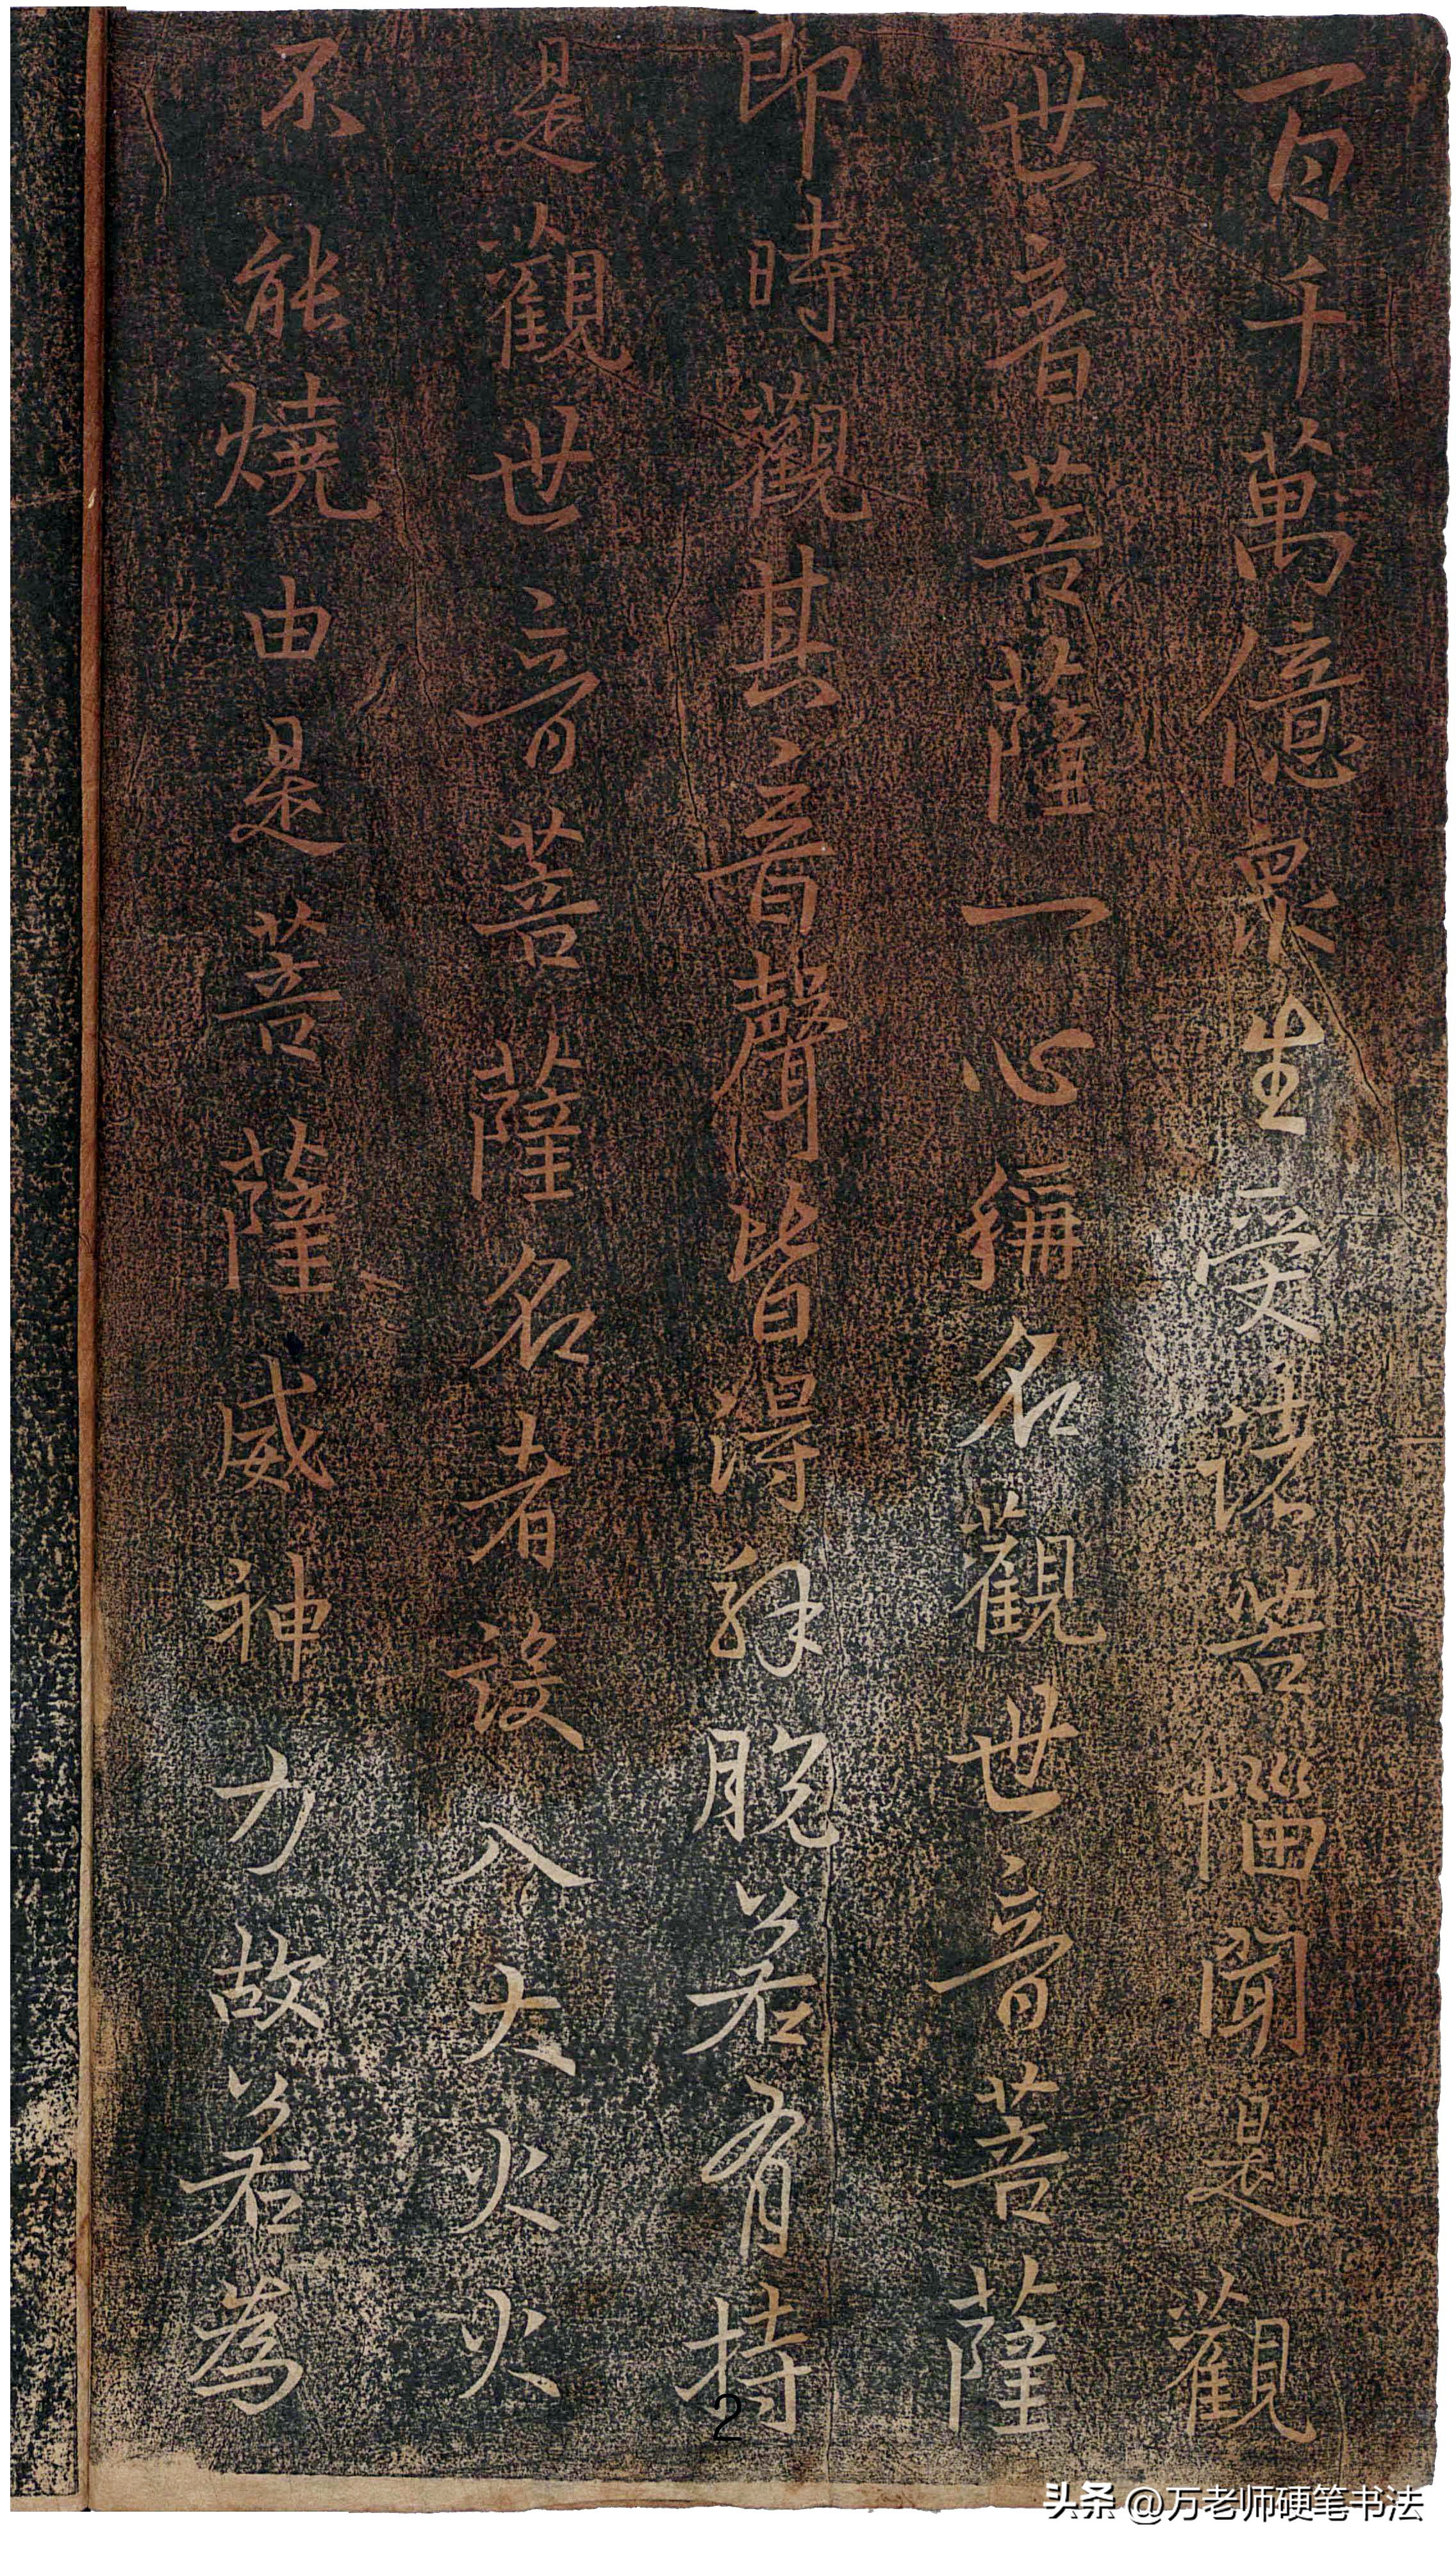 百千萬億眾生受諸苦惱聞是觀
世音菩薩一心稱名觀世音菩薩
即時觀其音聲皆得解脫若有持
是觀世音菩薩名者設入大火火
不能燒由是菩薩威神力故若為
2
头条 @万老师硬笔书法